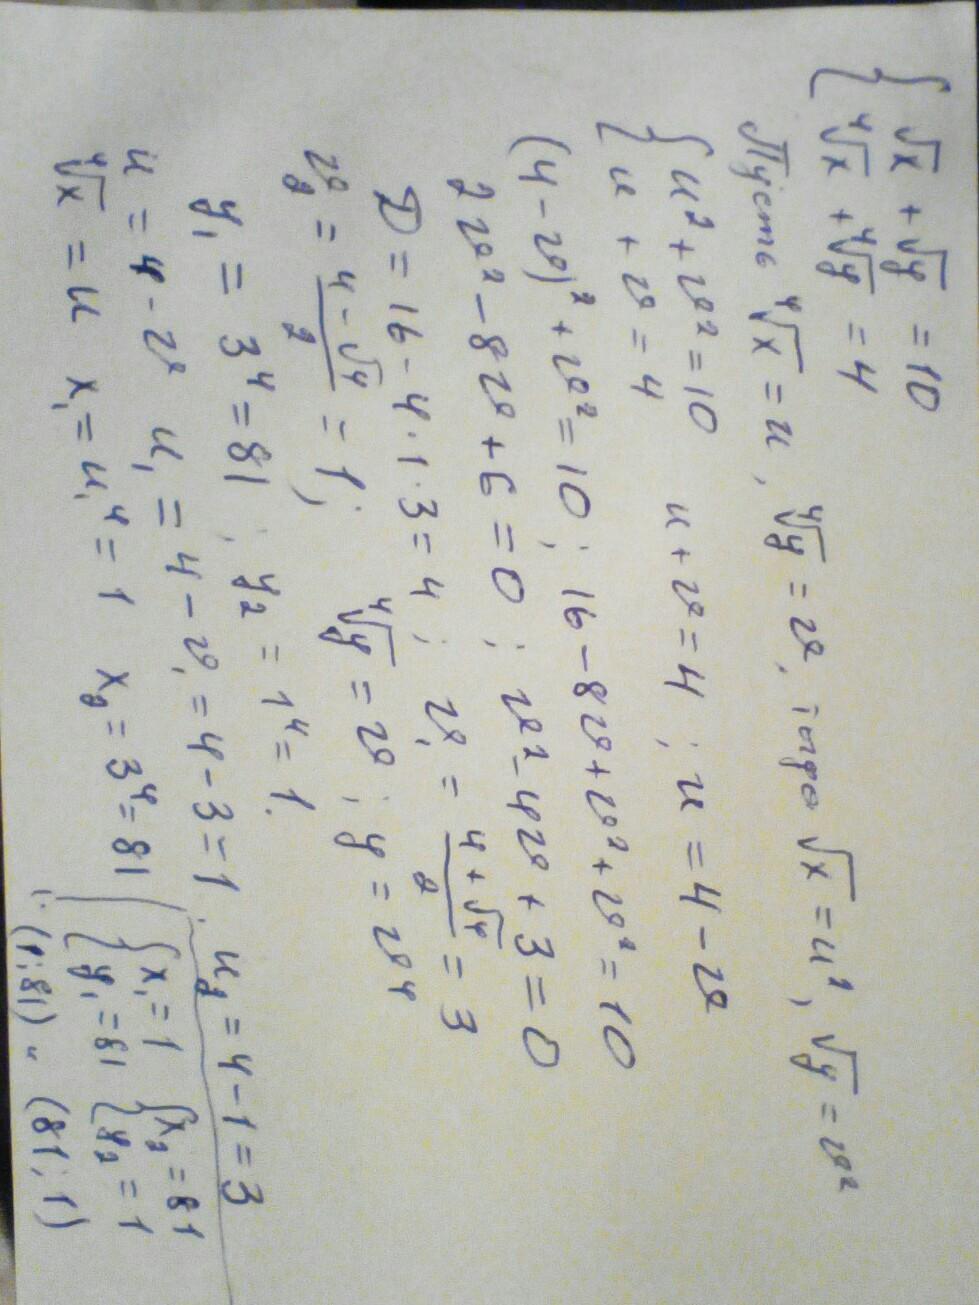 { √x + √y = 10
{ ∜x + ∜y = 4
Пусть ∜x = u, ∜y = v, тогда √x = u², √y = v²
{ u² + v² = 10
{ u + v = 4 u + v = 4 ; u = 4 - v
(4 - v)² + v² = 10 ; 16 - 8v + v² + v² = 10
2v² - 8v + 6 = 0 ; v² - 4v + 3 = 0
D = 16 - 4·1·3 = 4 ; v₁ = (4 + √4)/2 = 3
v₂ = (4 - √4)/2 = 1 ; ∜y = v ; y = v⁴
y₁ = 3⁴ = 81 ; y₂ = 1⁴ = 1.
u = 4 - v u₁ = 4 - v₁ = 4 - 3 = 1. u₂ = 4 - 1 = 3
∜x = u x₁ = u₁⁴ = 1 x₂ = 3⁴ = 81
{ x₁ = 1 { x₂ = 81
{ y₁ = 81 { y₂ = 1
(1; 81) и (81; 1)